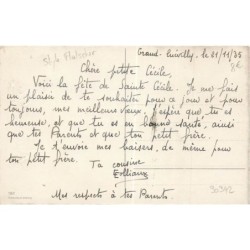 Grand-Quevilly, le 21/11/35
Chère petite Cécile,
Voici la fête de Sainte Cécile. Je me fais
un plaisir de te souhaiter pour ce jour et pour
toujours, mes meilleurs vœux. J'espère que tu es
heureuse, et que tu es en bonne santé, ainsi
que tes Parents et que ton petit frère.
Je t'envoie mes baisers, de même pour
ton petit frère.
Ta cousine
Mes respects à tes Parents